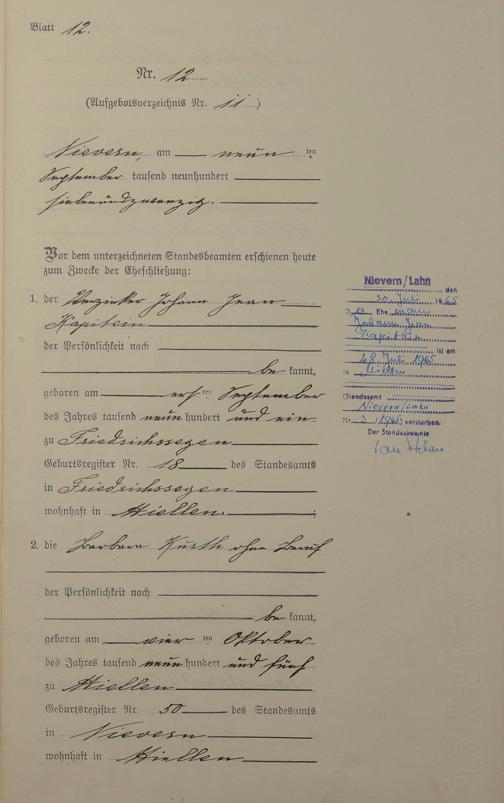 Blatt 12.
Nr. 12
(Aufgebotsverzeichnis Nr. 11)
Nievern, am neun ten
September tausend neunhundert
siebenundzwanzig.
Vor dem unterzeichneten Standesbeamten erschienen heute
zum Zwecke der Eheschließung:
1. der Verzinker Johann Jean
Kapitain
der Persönlichkeit nach
be kannt,
geboren am ersten September
des Jahres tausend neunhundert und ein
zu Friedrichssegen
Geburtsregister Nr. 18 des Standesamts
in Friedrichssegen
wohnhaft in Miellen.
2. die Barbara Kurth ohne Beruf
der Persönlichkeit nach
be kannt,
geboren am vier ten Oktober
des Jahres tausend neunhundert und fünf
zu Miellen
Geburtsregister Nr. 50 des Standesamts
in Nievern
wohnhaft in Miellen
Nievern/Lahn
den
30. Juli 1965
Ehe
Johann Jean
ist am
Juli 1965
in Miellen
(Standesamt
Nievern/Lahn
Nr. 3 /1965) verstorben.
Der Standesbeamte